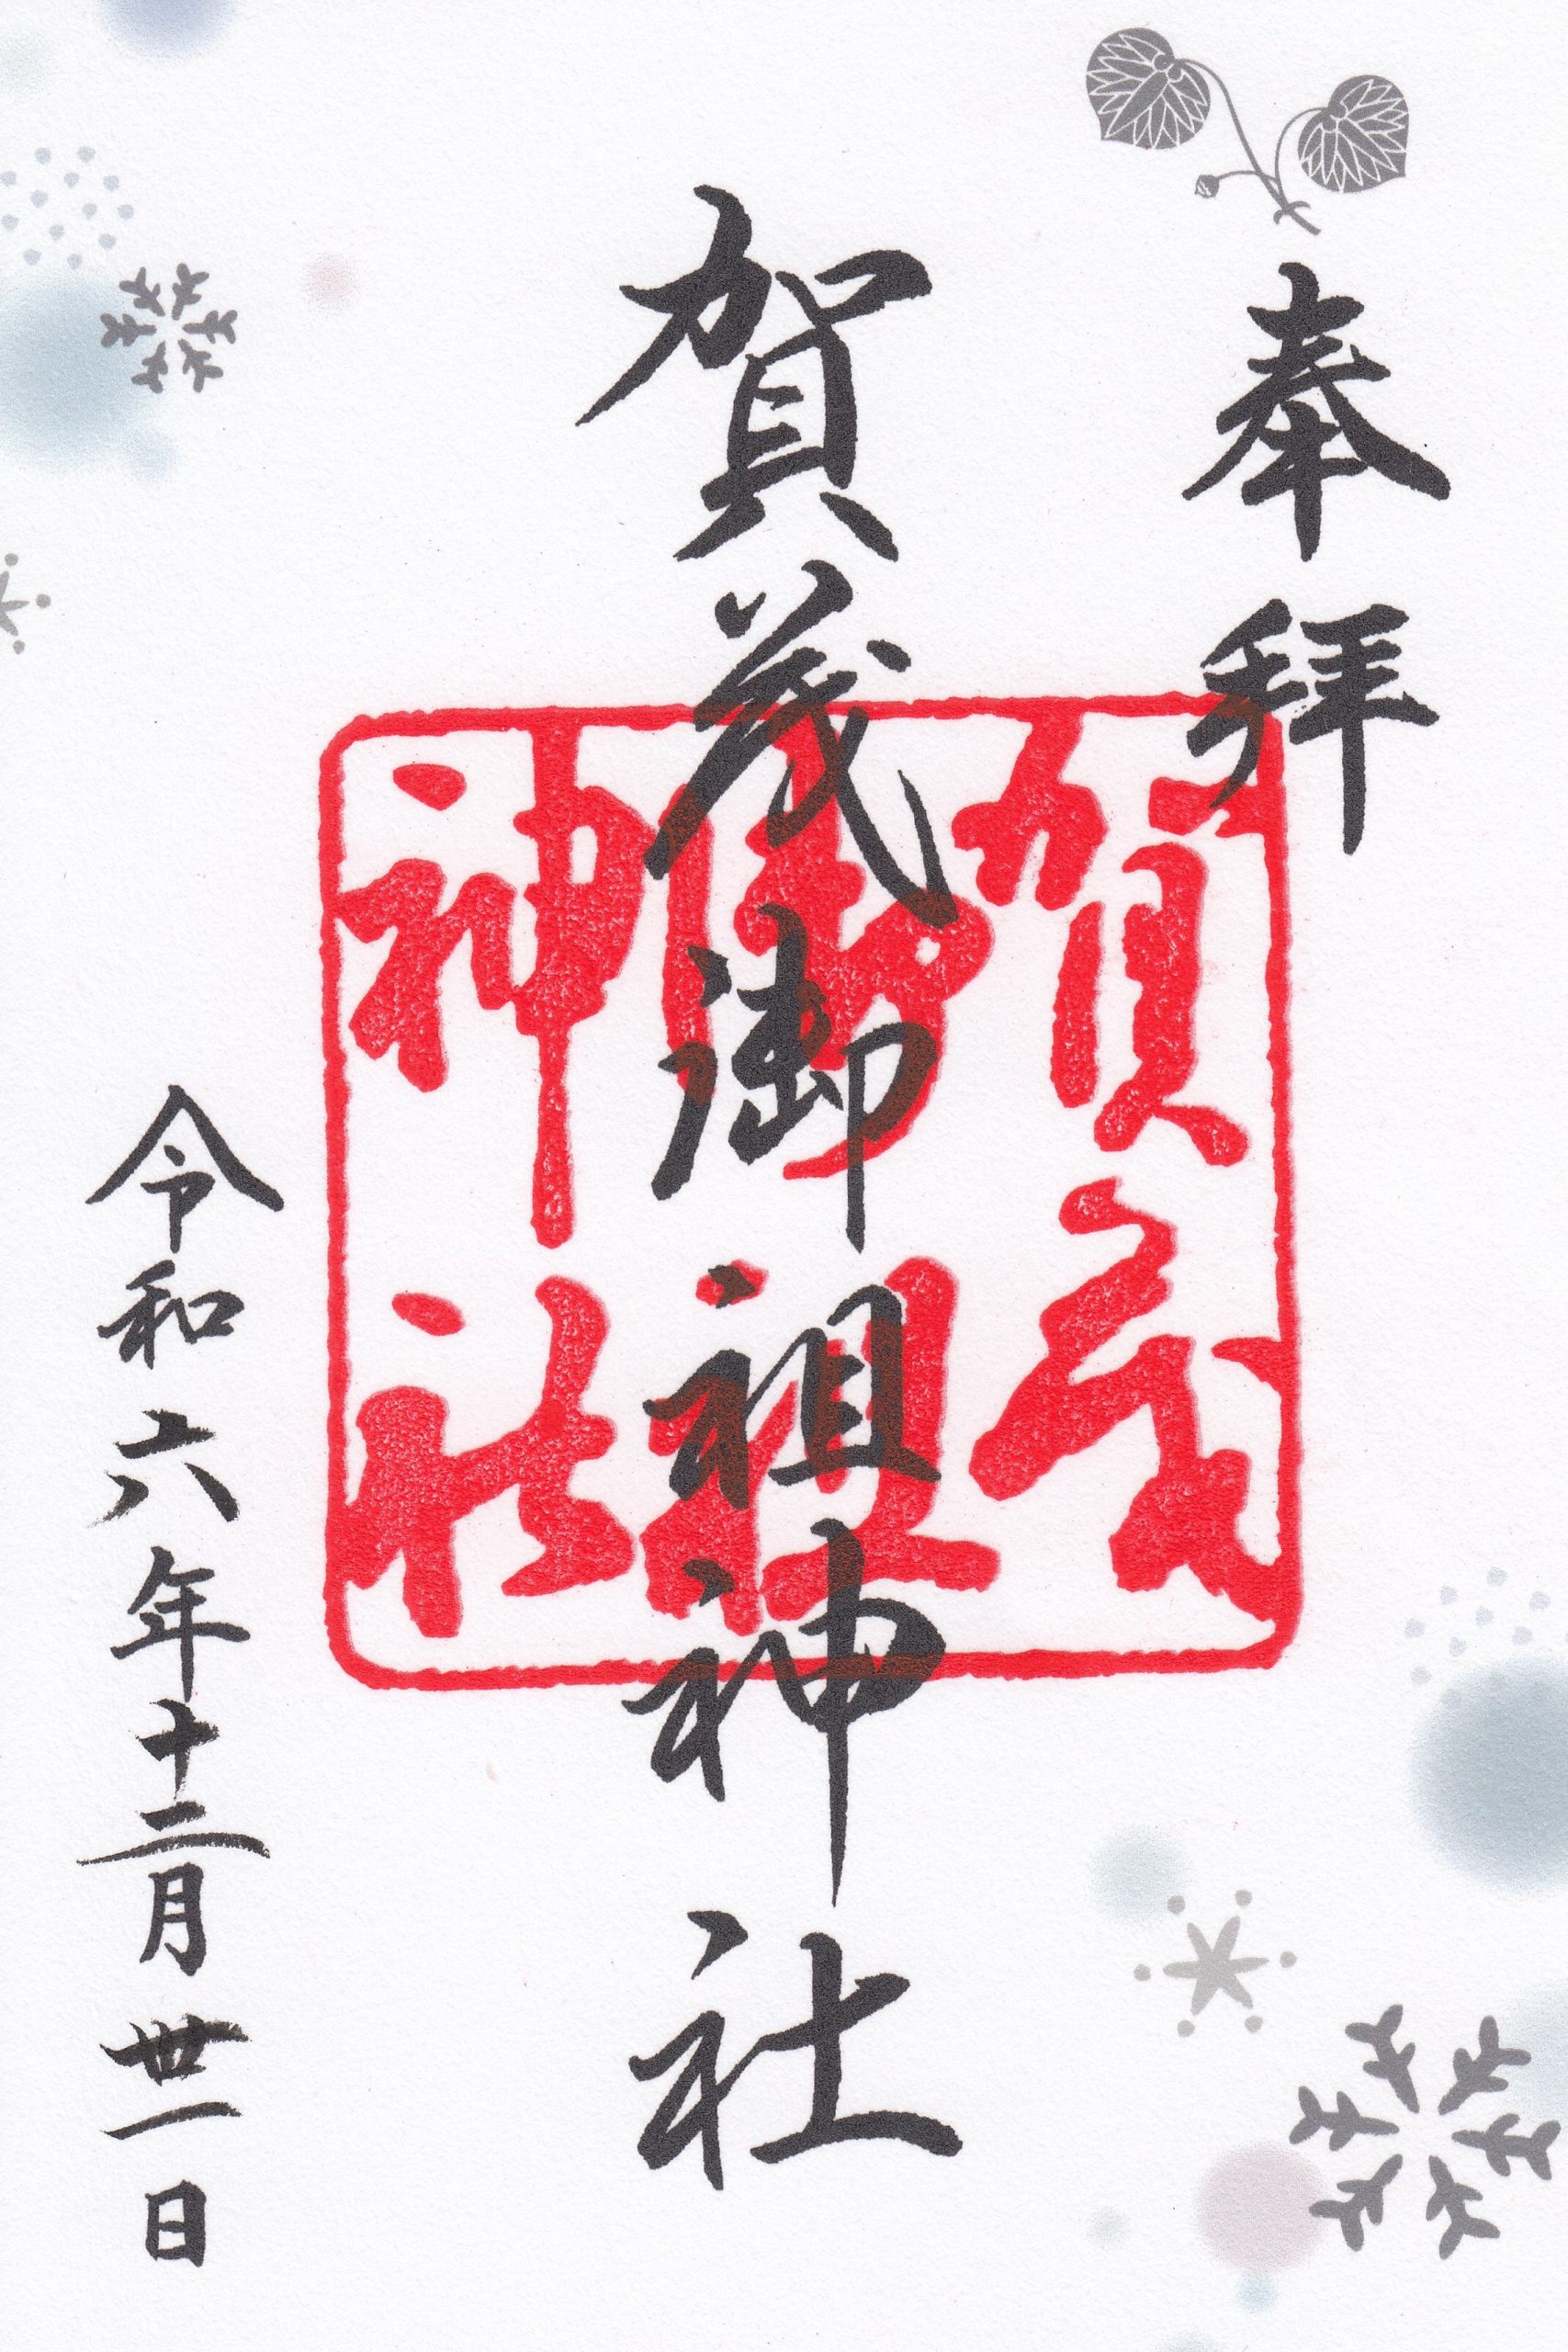 奉拝
賀茂御祖神社
賀茂
御祖
神社
令和六年十二月丗一日